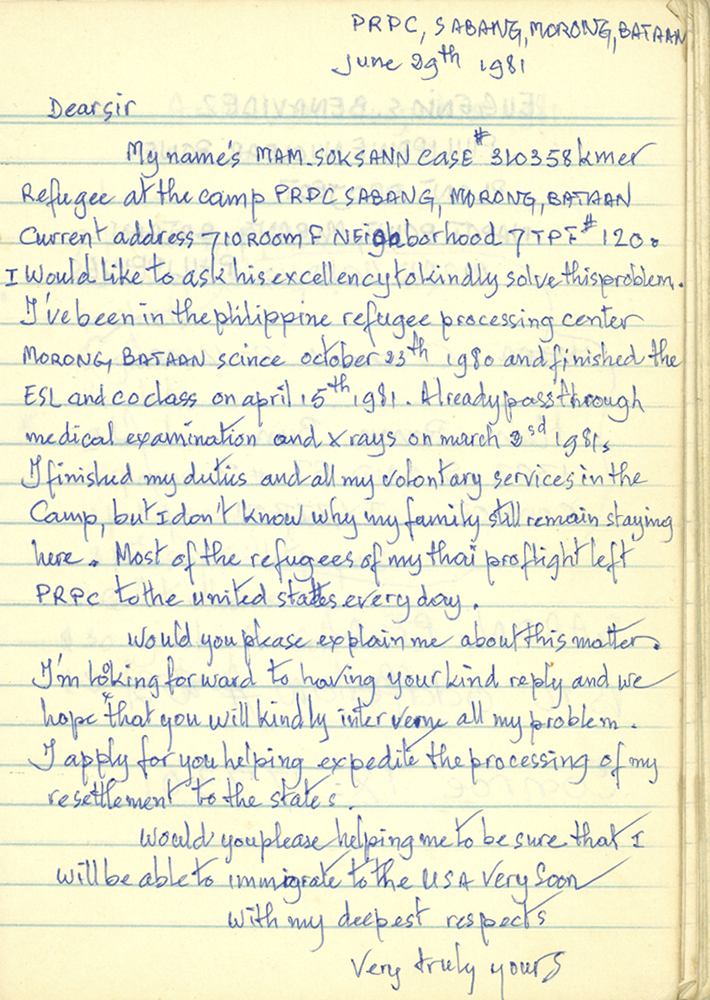 PRPC, SABANG, MORONG, BATAAN
June 29th 1981
Dearsir
My name's MAM. SOKSANN case # 310358 kmer
Refugee at the camp PRPC SABANG, MORONG, BATAAN
Current address 710 room F NEighborhood 7 TPF # 120.
I Would like to ask his excellency to kindly solve this problem.
I've been in the phlilippine refugee processing center
MORONG, BATAAN scince october 23th 1980 and finished the
ESL and co class on april 15th 1981. Already pass through
medical examination and x rays on march 3sd 1981,
I finished my dutiis and all my volontary services in the
Camp, but I don't know why my family still remain staying
here. Most of the refugees of my thai proflight left
PRPC to the united states every day.
Would you please explain me about this matter.
I'm looking for ward to having your kind reply and we
hope that you will kindly interverne all my problem.
I apply for you helping expedite the processing of my
resettlement to the states.
Would you please helping me to be sure that I
will be able to immigrate to the USA Very Soon
With my deepest respects
Very truly yours